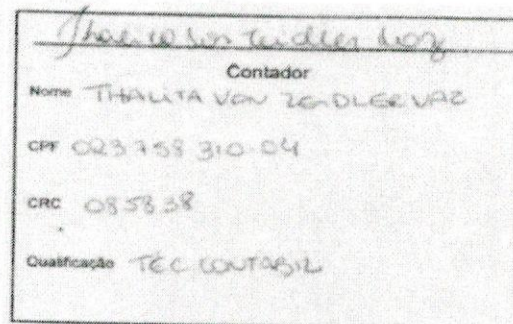 Thalita Von Zeidler Vaz
Contador
Nome THALITA VON ZEIDLER VAZ
CPF 023 758 310-04
CRC 085838
Qualificação TÉC CONTÁBIL